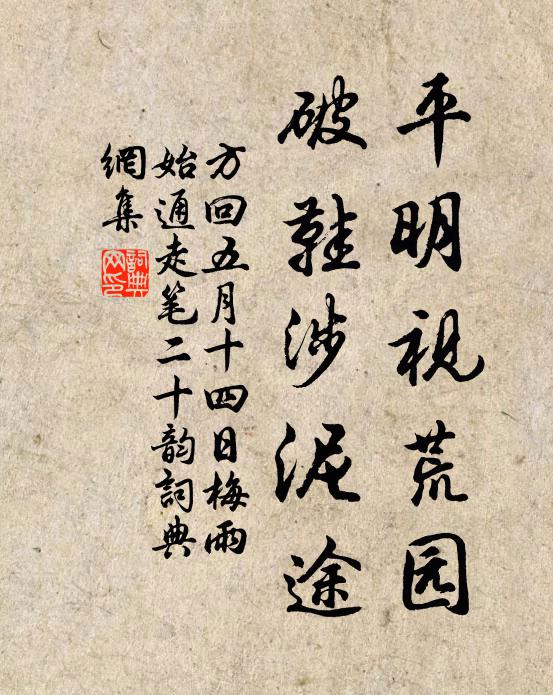 平明視荒园
破鞋涉泥途
方回五月十四日梅雨
始通走笔二十韵詞典
網集
詞典
网印